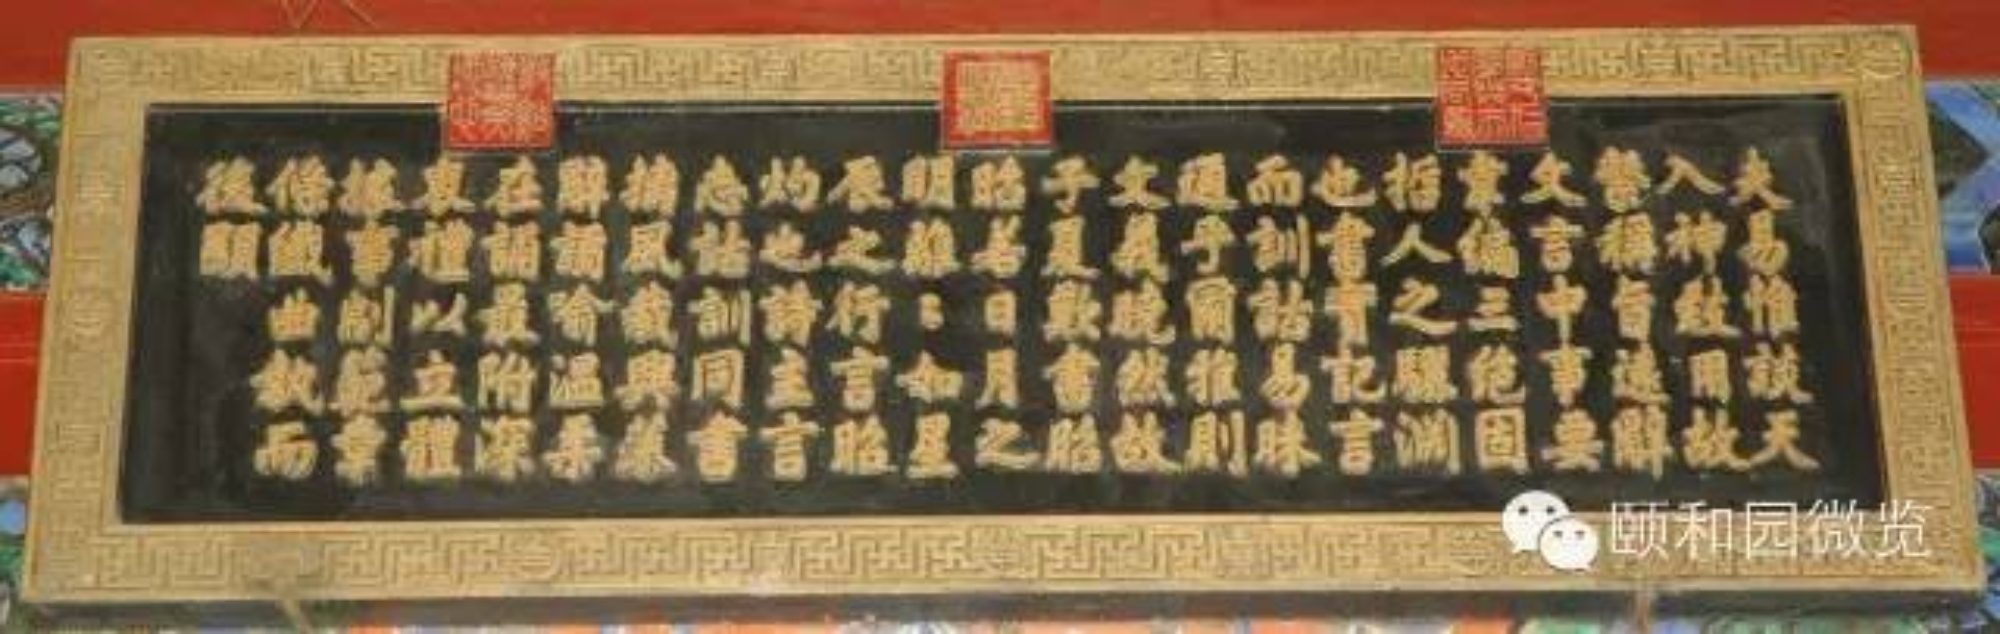 夫易惟談天
入神致用故
繫稱旨遠辭
文言中事要
韋編三絕固
哲人之驪淵
也書實記言
而訓詁易昧
通乎爾雅則
文義曉然故
子夏歎書昭
昭若日月之
明離:如星
辰之行言昭
灼也詩主言
志詁訓同書
摛風裁興藻
辭譎喻温柔
在誦最附深
衷禮以立體
據事制範章
條纖曲執而
後顯
颐和园微览